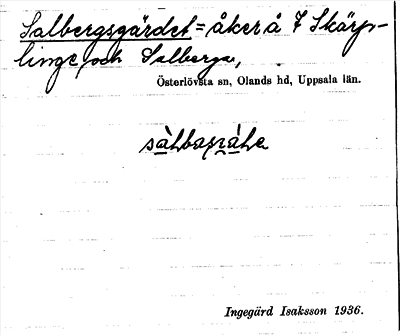 Salbergsgärdet = åker å 7 Skärp-
linge och Salberga,
Österlövsta sn, Olands hd, Uppsala län.
Ingegärd Isaksson 1936.